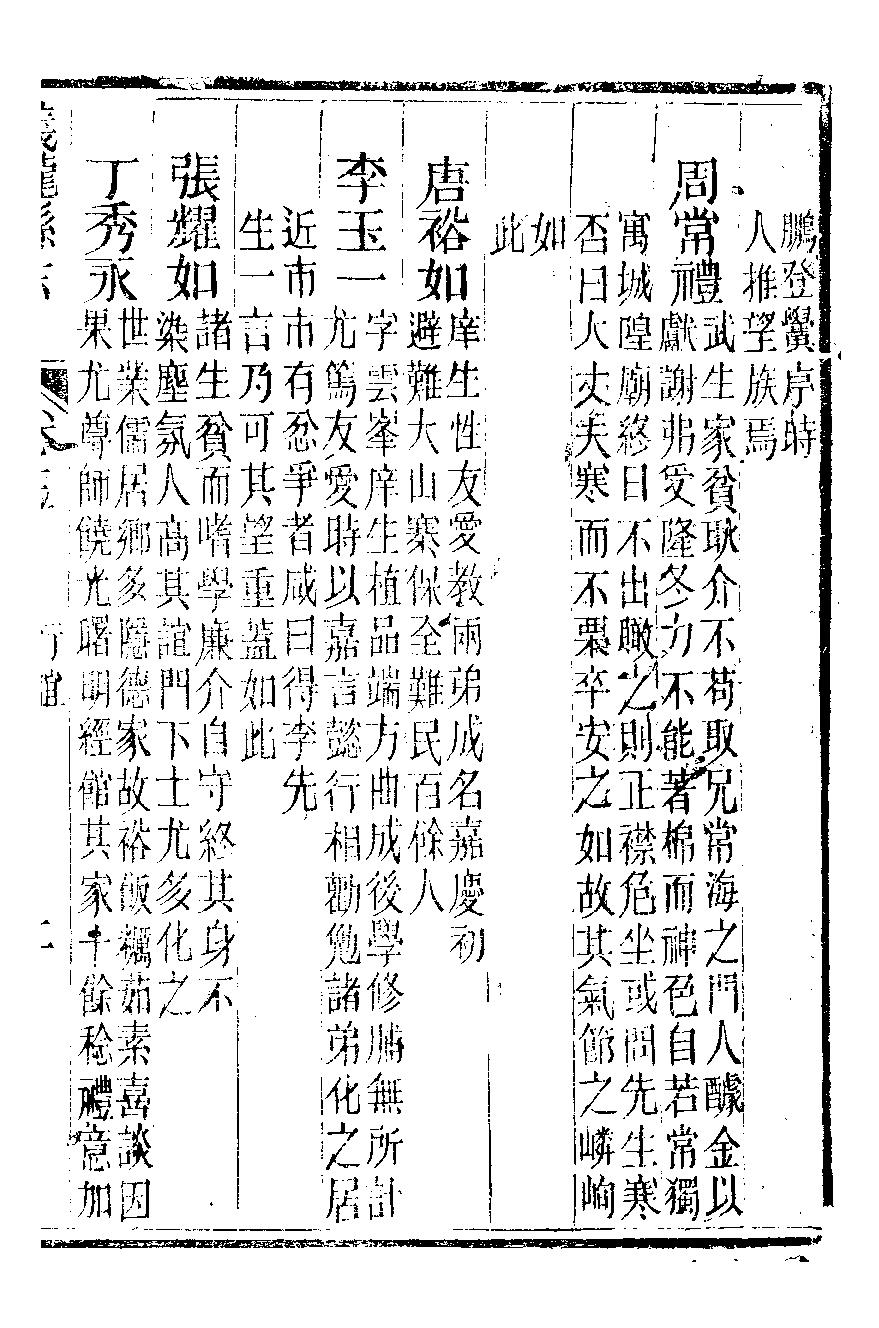 鵬登黌序時
人推望族焉
周常禮武生家貧耿介不苟取兄常海之門人醵金以
獻謝弗受隆冬力不能著棉而神色自若常獨
寓城隍廟終日不出瞰之則正襟危坐或問先生寒
否曰大丈夫寒而不栗卒安之如故其氣節之嶙峋
如
此
唐裕如庠生性友愛教兩弟成名嘉慶初
避難大山寨保全難民百餘人
李玉一字雲峯庠生植品端方曲成後學修脯無所計
尤篤友愛時以嘉言懿行相勸勉諸弟化之居
近市市有忿爭者咸曰得李先
生一言乃可其望重蓋如此
張耀如諸生貧而嗜學廉介自守終其身不
染塵氛人高其誼門下士尤多化之
丁秀永世業儒居鄉多隱德家故裕飯糲茹素喜談因
果尤尊師饒光曙明經館其家十餘稔禮意加
儀隴縣志 卷五 行誼